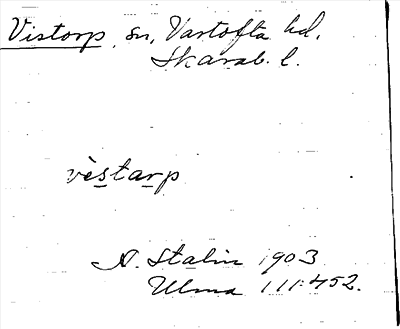 Vistorp, sn, Vartofta hd.
Skarab. l.
vèstarp
A. Stalin 1903
Ulma 111:452.